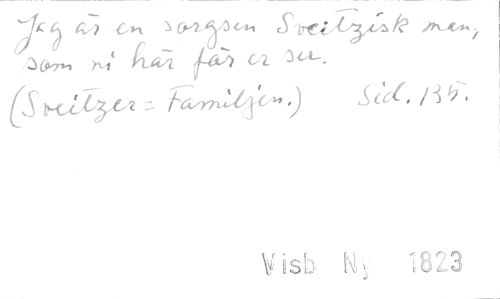 Jag är en sorgsen Sveitzisk man,
som ni här får er se.
(Sveitzer=Familjen.) Sid. 135.
Visb Ny 1823